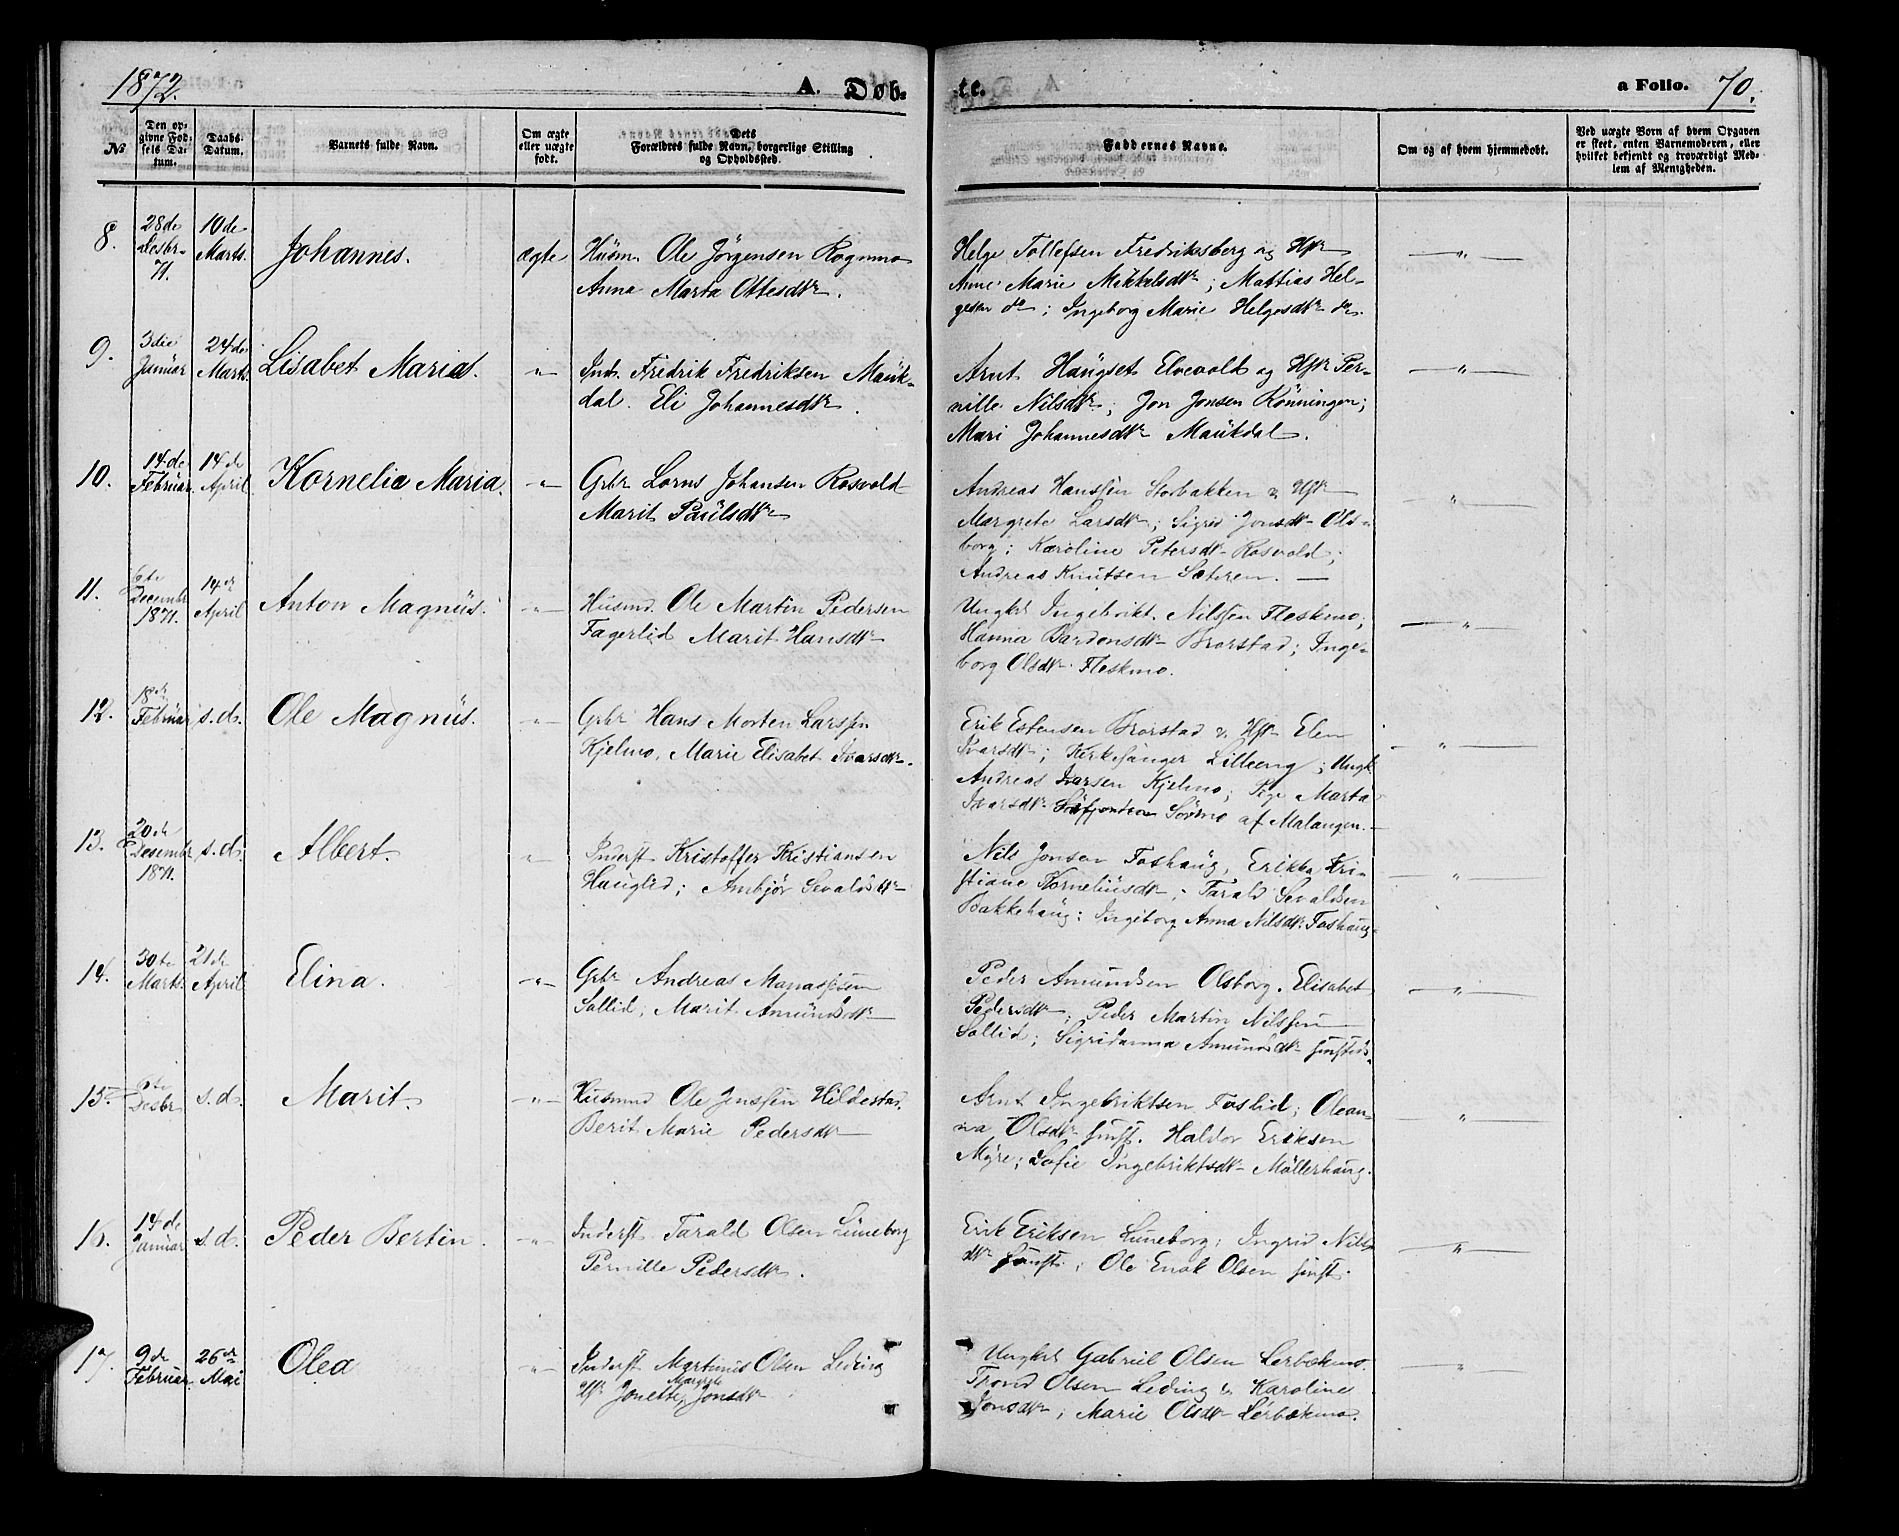 1872. A. Døb- te. a Folio. 70.
№
Den op-
givne Fød-
sels Da-
tum.
Daabs-
Datum.
Barnets fulde Navn.
Om ægte
eller uægte
født.
Dets
Forældres fulde Navn, borgerlige Stilling
og Opholdssted.
Faddernes Navne.
Om og af hvem hjemmedøbt.
Ved uægte Børn af hvem Opgaven
er skeet, enten Barnemoderen, eller
hvilket bekjendt og troværdigt Med-
lem af Menigheden.
8. 28de Desbr- 71. 10de Marts. Johannes. ægte
Husm. Ole Jörgensen Rognmo
Anna Marta Ottesdtr.
Helge Tollefsen Fredriksberg og Hstr
Anne Marie Mikkelsdtr; Mattias Hel-
gesen do; Ingeborg Marie Helgesdtr do.
9. 3die Januar 24de Marts. Lisabet Maria. "
Inds. Fredrik Fredriksen Mauk-
dal. Eli Johannesdtr.
Arnt Haugset Elvevold og Hstr Per-
nille Nilsdtr; Jon Jonsen Rönningen;
Mari Johannesdtr Maukdal.
10. 14de Februar. 14de April. Kornelia Maria. "
Grbr Lorns Johansen Rosvold
Marit Paulsdtr
Andreas Hanssen Storbakken & Hstr
Margrete Larsdtr; Sigrid Jonsdtr Ols-
borg; Karoline Petersdtr Rosvold;
Andreas Knutsen Sæteren.
11. 6te Decembr 1871. 14de April Anton Magnus. "
Husmd. Ole Martin Pedersen
Fagerlid Marit Hansdtr
Ungkrl Ingebrikt Nilssen Fleskmo;
Hanna Bardonsdtr Brorstad; Inge-
borg Olsdtr Fleskmo.
12. 18de Februar s.d. Ole Magnus. "
Grbr Hans Morten Larssen
Kjelmo, Marie Elisabet Ivarsdtr.
Erik Estensen Brorstad & Hstr Elen
Ivarsdtr; Kirkesanger Lilleeng; Ungk
Andreas Larsen Kjelmo; Pige Marta
Ivarsdtr Sörmo af Malangen.
13. 20de Desembr 1871. s.d. Albert. "
Inderst Kristoffer Kristiansen
Hauglid; Anbjör Sevaldsdtr
Nils Jonsen Foshaug, Erikka Kri-
stiane Korneliusdtr; Tarald Sevaldsen
Bakkehaug; Ingeborg Anna Nilsdtr. Foshaug
14. 30te Marts. 21de April Elina. "
Grbr Andreas Manassesen
Sollid; Marit Amundsdtr
Peder Amundsen Olsborg. Elisabet
Pedersdtr; Peder Martin Nilssen
Sollid; Sigridanna Amundsdtr
15. 6te Desbr s.d. Marit. "
Husmnd Ole Jenssen Hildestad.
Berit Marie Pedersdtr
Arnt Ingebriktsen Foslid; Olean-
na Olsdtr sinst. Haldor Eriksen
Myre; Sofie Ingebriktsdtr Möllerhaug.
16. 14de Januar s.d. Peder Bertin. "
Inderst Tarald Olsen Luneborg
Pernille Pedersdtr.
Erik Eriksen Luneborg; Ingrid Nils
dtr sinst; Ole Enok Olsen sinst.
17. 9de Februar. 26de Mai Olea "
Inderst Martinus Olsen Leding
H. Jonette Margrete Jonsdtr
Ungkrl Gabriel Olsen Lerbekmo.
Trond Olsen Leding & Karoline
Jonsdtr; Marie Olsdtr Lerbekmo.